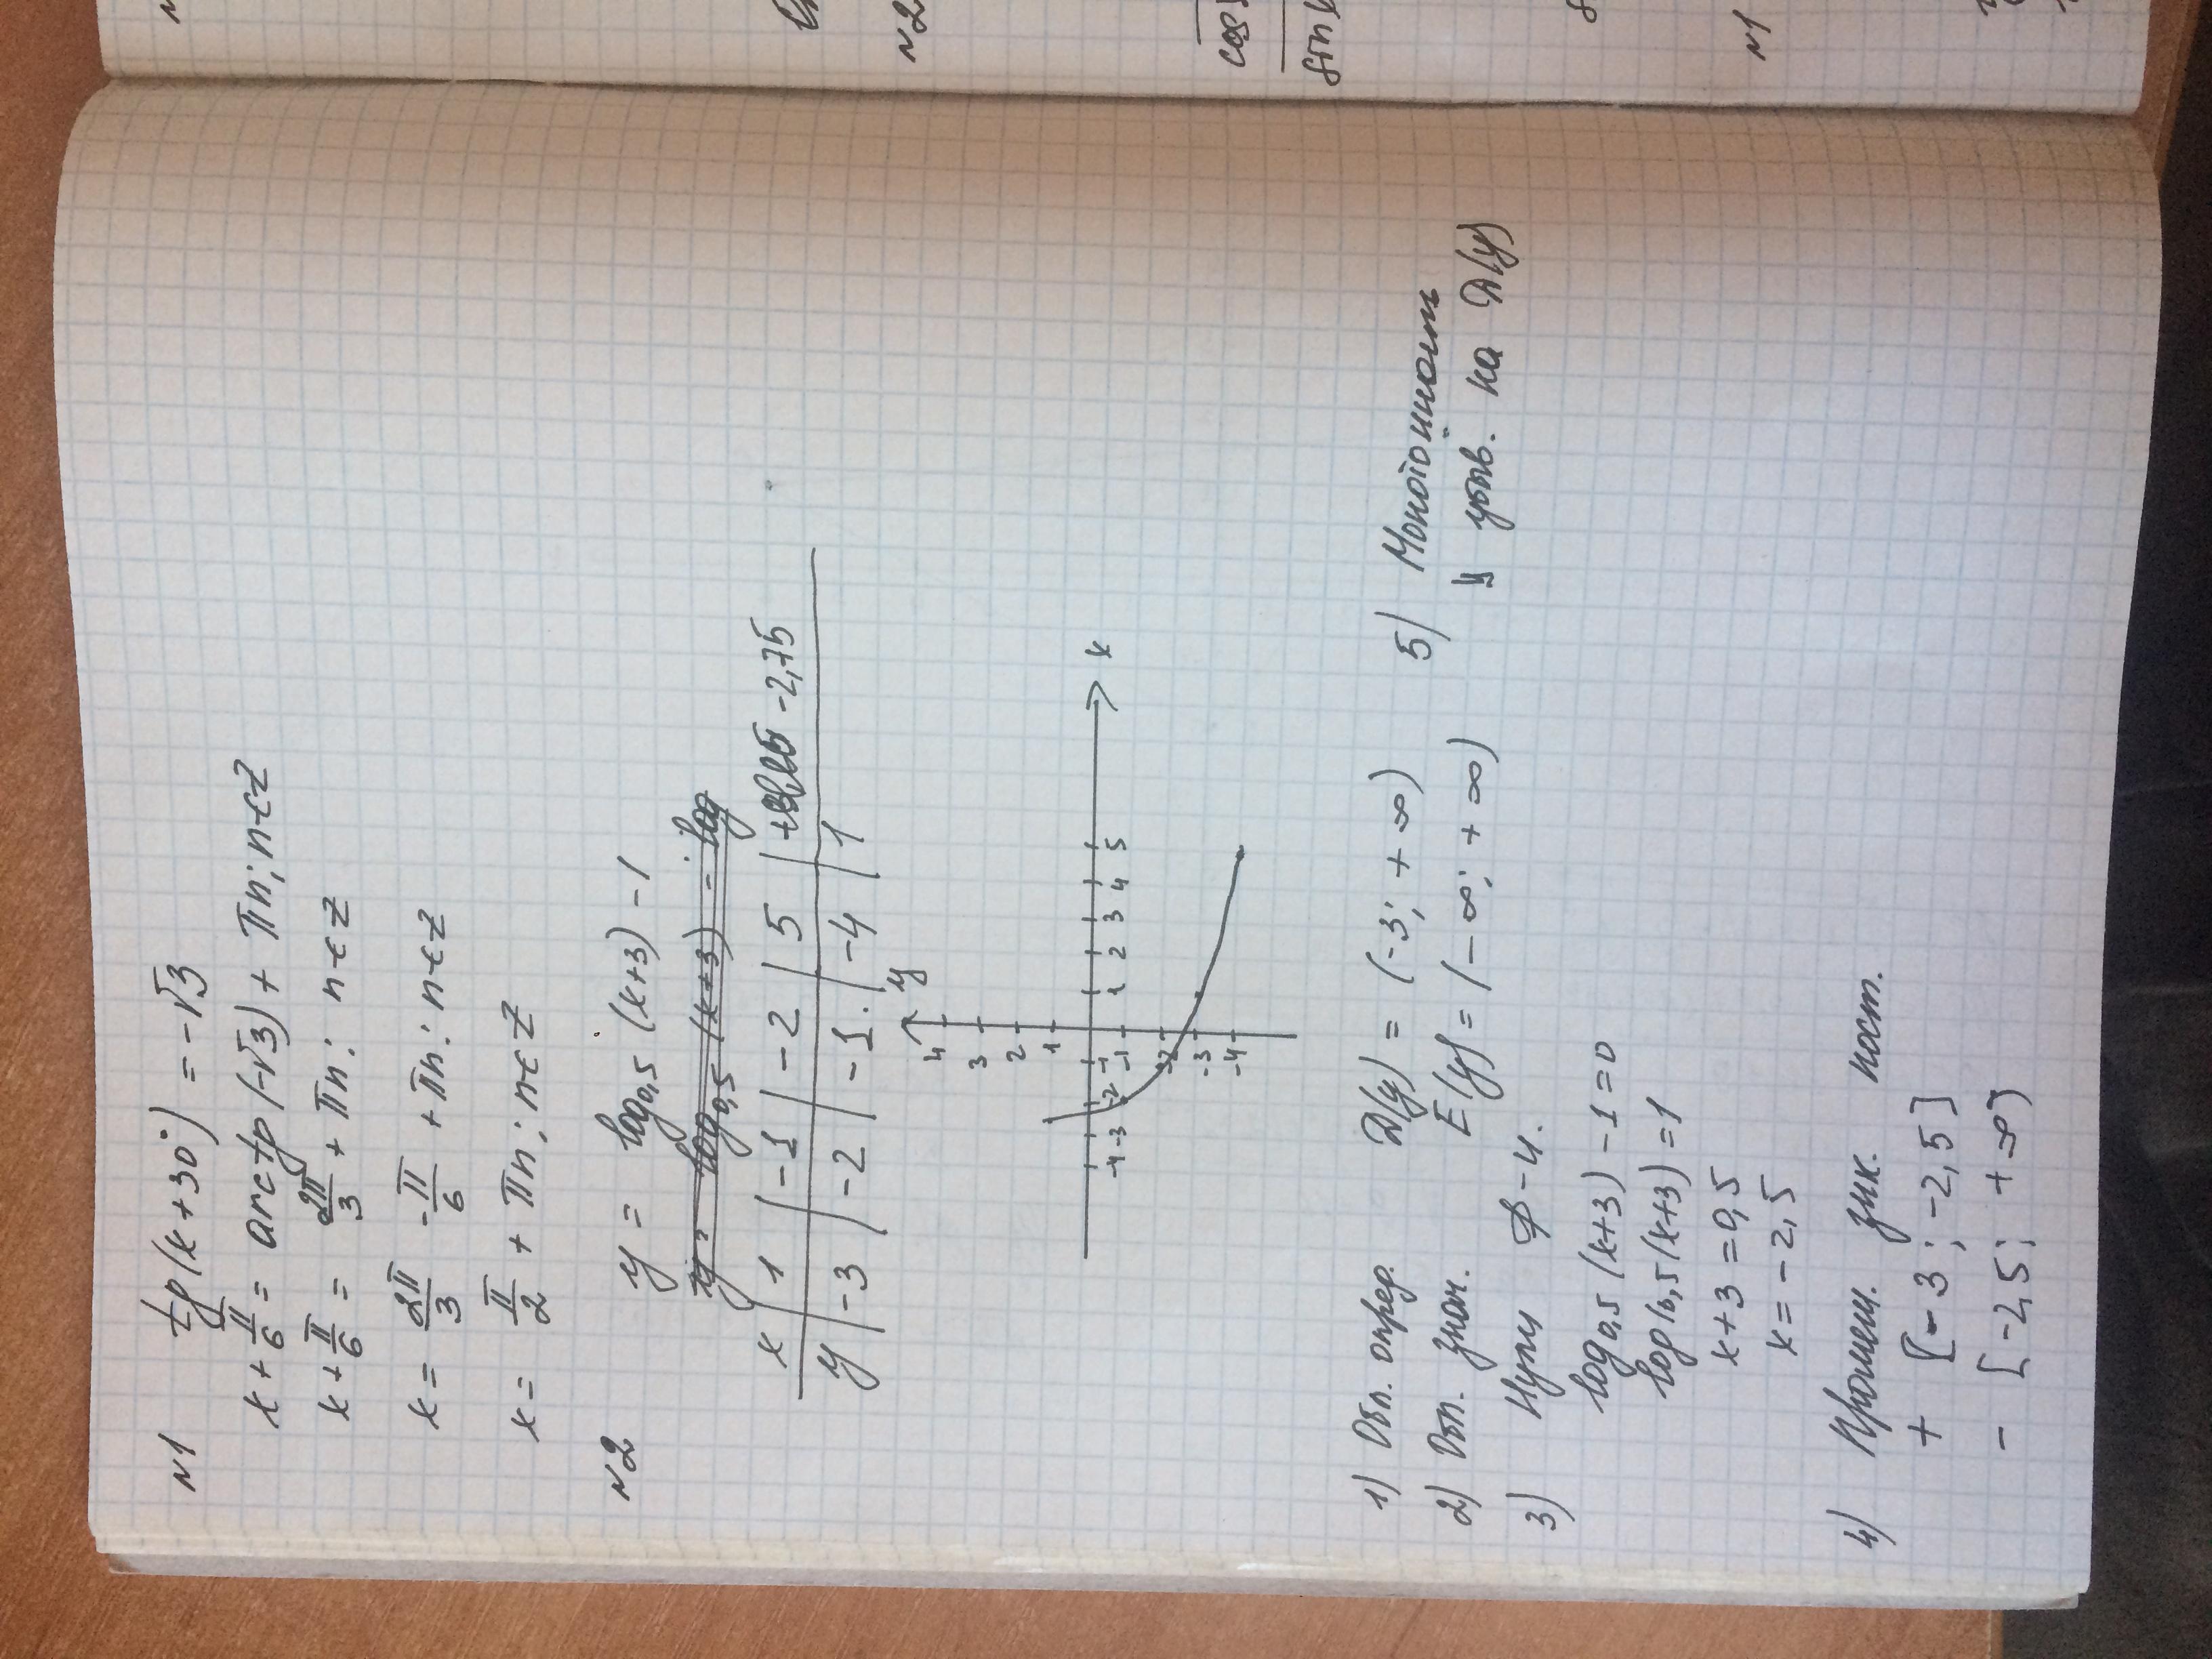 N1 tg(x+30°) = -√3
x + π/6 = arctg(-√3) + πn; n∈Z
x + π/6 = 2π/3 + πn; n∈Z
x = 2π/3 - π/6 + πn; n∈Z
x = π/2 + πn; n∈Z
N2 y = log0,5 (x+3) - 1
x | 1 | -1 | -2 | 5 | -2,75
y | -3 | -2 | -1. | -4 | 1
y
4
3
2
1
-4 -3 -2 -1 1 2 3 4 5 x
-1
-2
-3
-4
1) Обл. опред. D(y) = (-3; +∞)
2) Обл. знач. E(y) = (-∞; +∞)
3) Нули ф-и.
log0,5 (x+3) - 1 = 0
log0,5 (x+3) = 1
x+3 = 0,5
x = -2,5
4) Пром. знк. пост.
+ [-3; -2,5]
- [-2,5; +∞)
5) Монотонность
y убыв. на D(y)
N2
cos
sin
N1